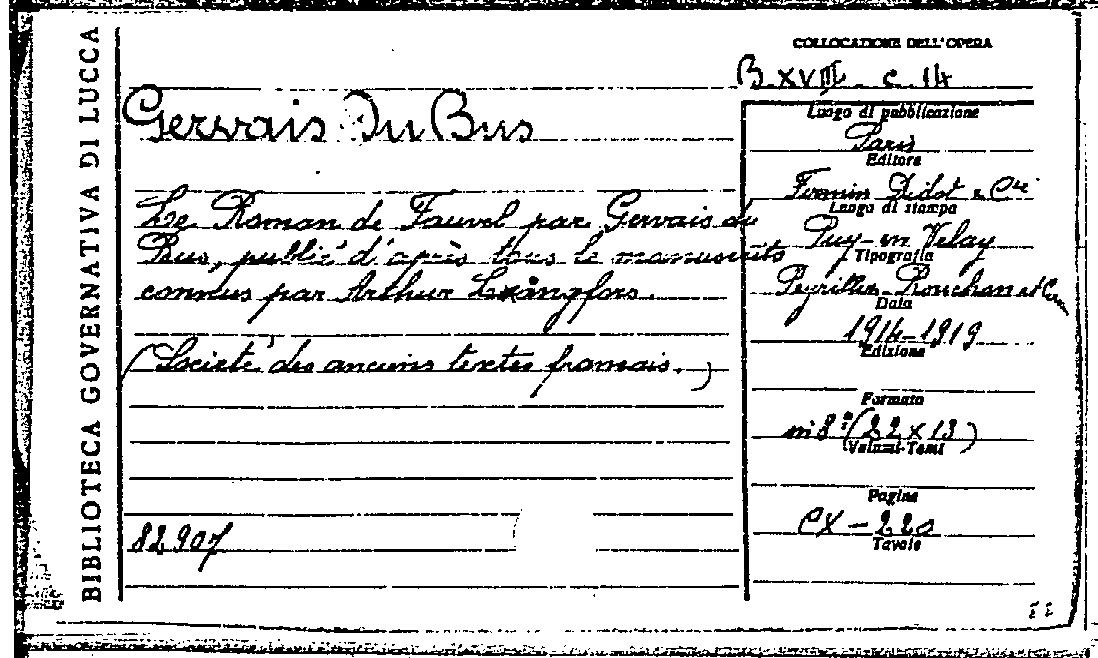 BIBLIOTECA GOVERNATIVA DI LUCCA
COLLOCAZIONE DELL'OPERA
B. XVIII. c. 14
Gervais Du Bus
Le Roman de Fauvel par Gervais du
Bus, publié d'après tous le manuscrits
connus par Arthur Långfors.
(Societé des anciens textes français.)
82907
Luogo di pubblicazione
Paris
Editore
Firmin Didot & Cie
Luogo di stampa
Puy-en Velay
Tipografia
Peyriller Rouchon et
Data
1914-1919
Edizione
Formato
in 8° (22 x 13)
Volumi-Tomi
Pagine
CX - 220
Tavole